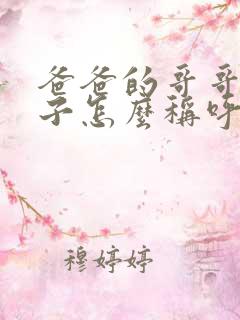 爸爸的哥哥
子怎麼稱呼
穆婷婷